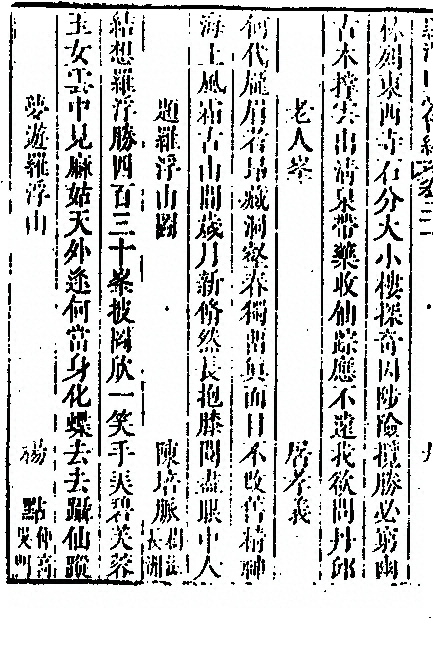 羅浮山 卷二
東西寺石分大小樓探奇因陟險攬勝必窮幽
古木撐雲出清泉帶藥收仙踪應不遠我欲問丹邱
老人峯 居孝義
何代龎眉者昂藏洞壑春獨留真面目不改舊精神
海上風霜古山間歲月新脩然長抱膝閱盡眼中人
題羅浮山圖 陳培脈
結想羅浮勝四百三十峯披圖欣一笑手弄碧芙蓉
玉女雲中見麻姑天外逢何當身化蝶去去躡仙蹤
夢遊羅浮山 楊 點